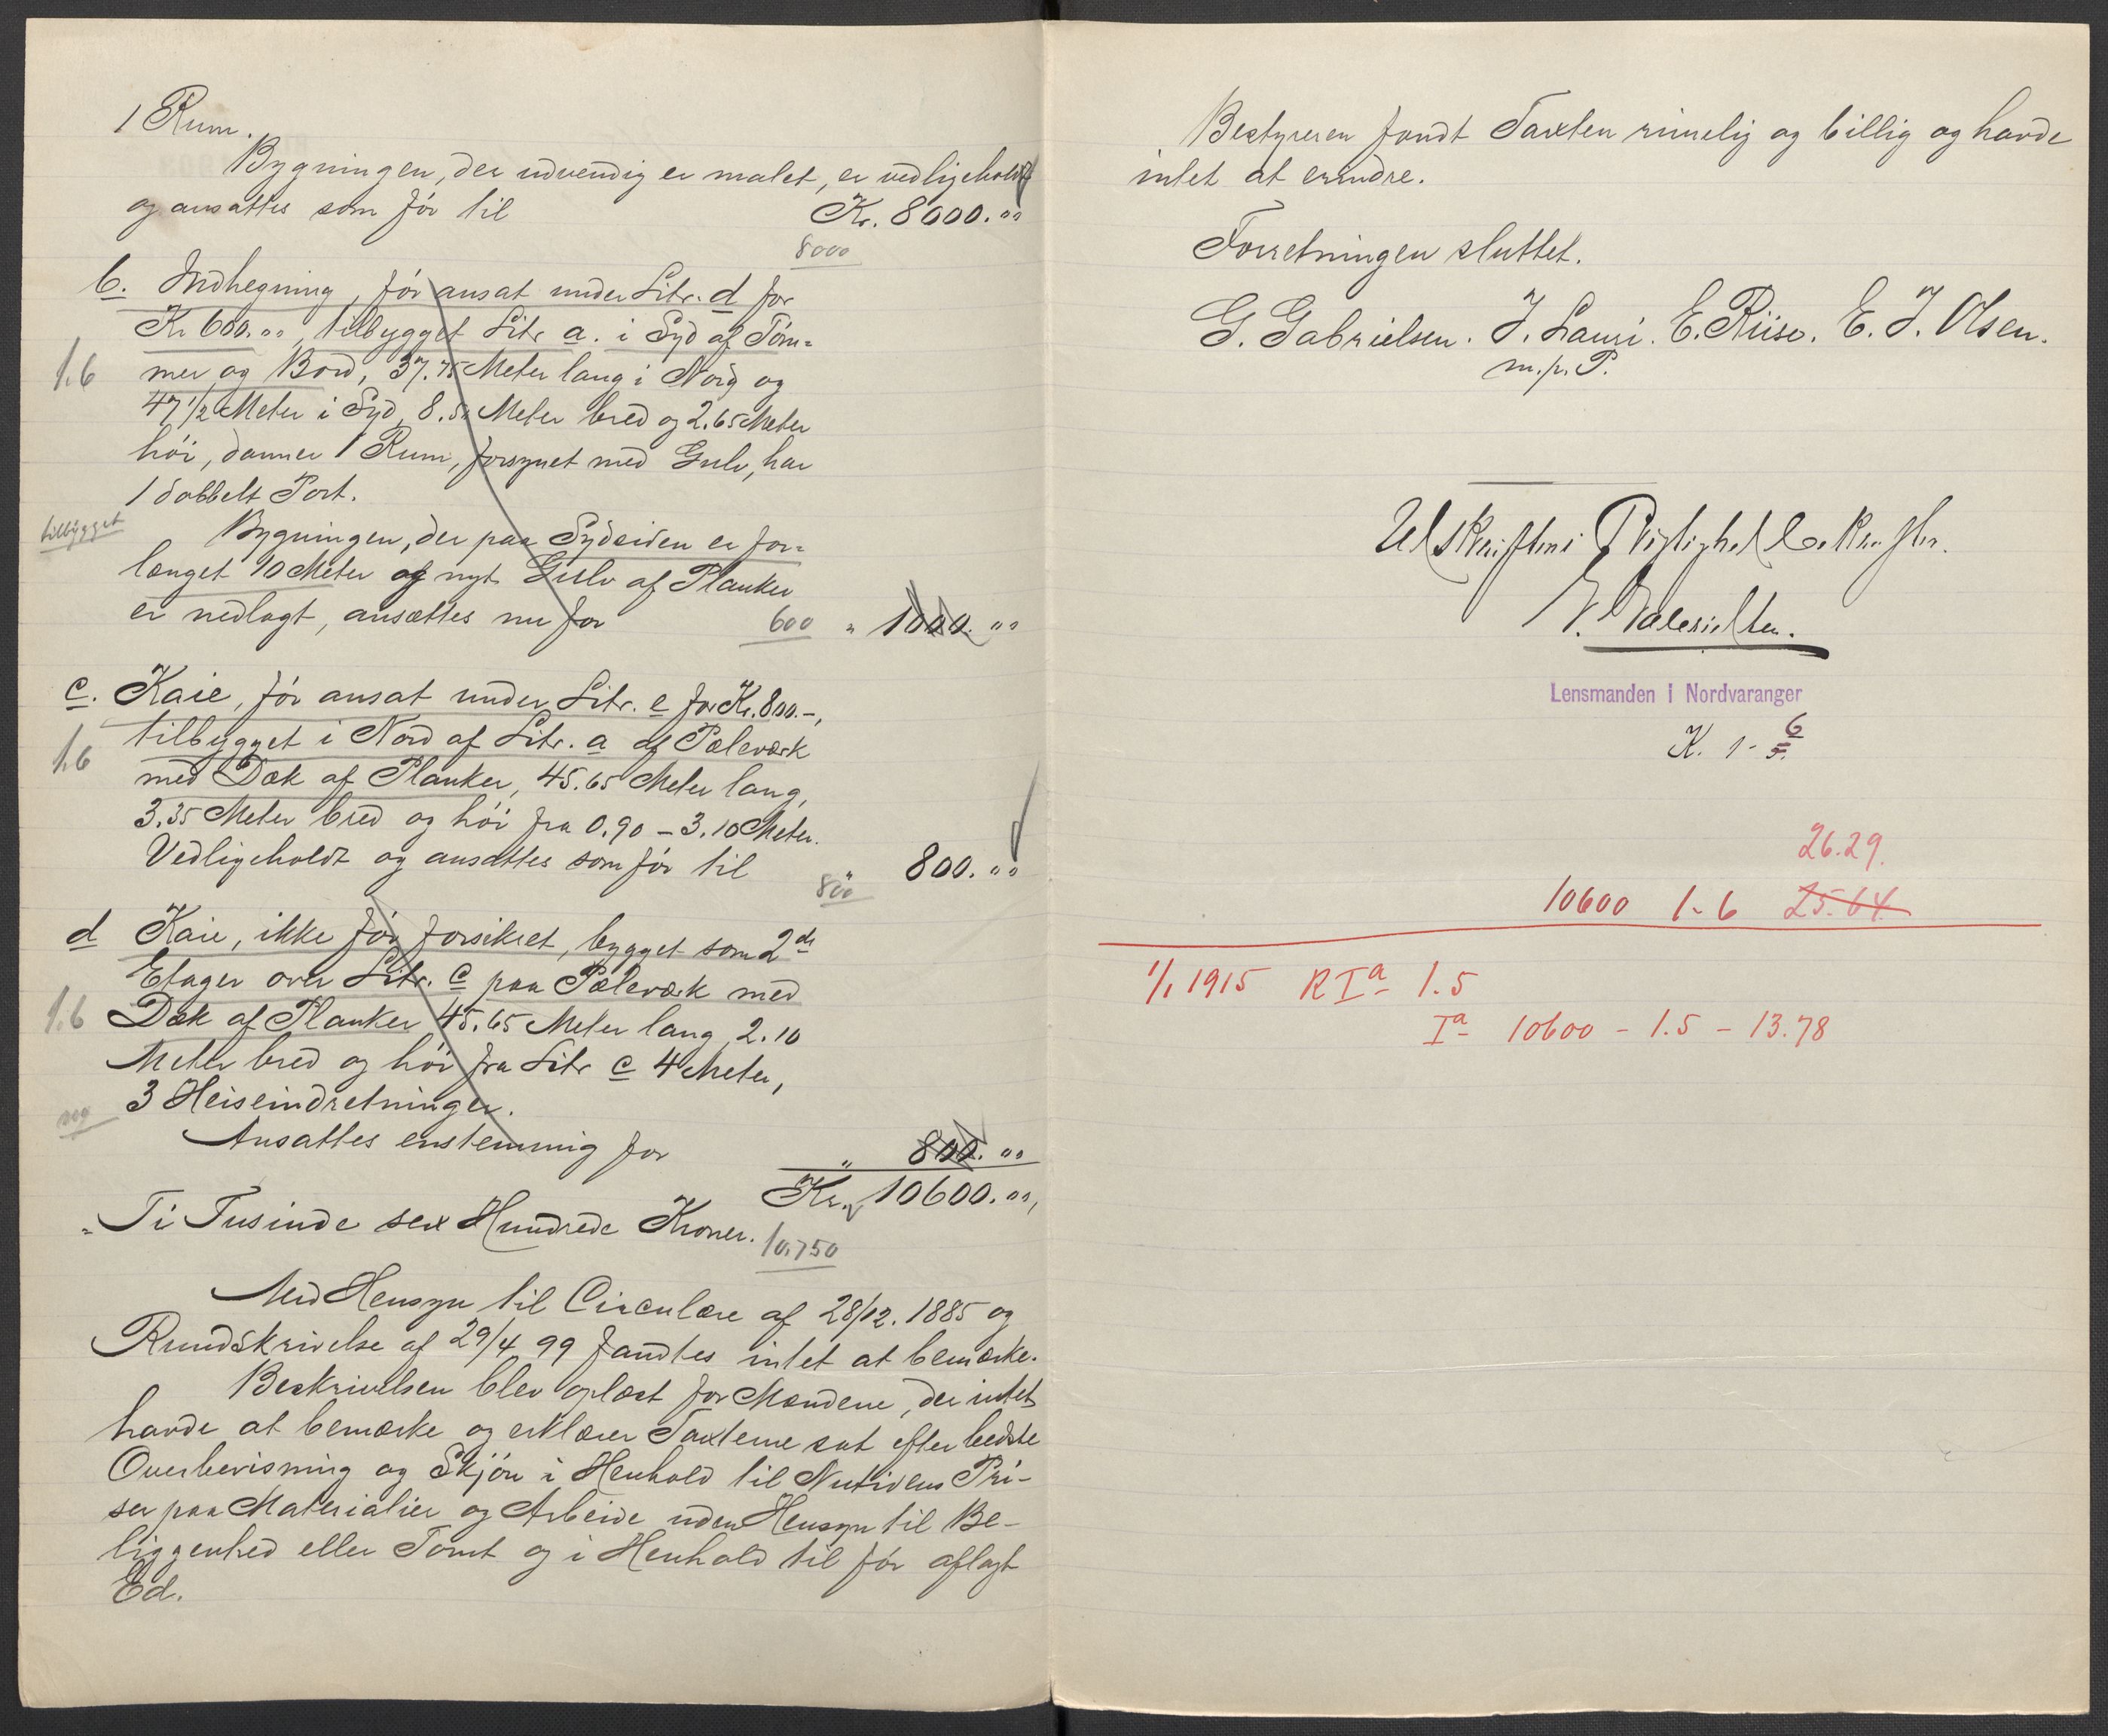 1 Rum.
Bygningen, der udvendig er malet, er vedligeholdt
og ansættes som før til Kr. 8000.""
8000
b. Indhegning, før ansat under Litr. d for
Kr 600."", tilbygget Litr a. i Syd af Tøm-
1.6 mer og Bord, 37.75 Meter lang i Nord og
47 1/2 Meter i Syd, 8.50 Meter bred og 2.65 Meter
høi, danner 1 Rum, forsynet med Gulv, har
1 dobbelt Port.
tilbygget Bygningen, der paa Sydsiden er for-
længet 10 Meter og nyt Gulv af Planker
er nedlagt, ansættes nu for 600 " 1000.""
c. Kaie, før ansat under Litr. e for Kr. 800.-,
tilbygget i Nord af Litr. a af Pæleværk
1.6 med Dæk af Planker, 45.65 Meter lang,
3.35 Meter bred og høi fra 0.90 - 3.10 Meter.
Vedligeholdt og ansættes som før til " 800.""
800
d Kaie, ikke før forsikret, bygget som 2de
Etager over Litr. c paa Pæleværk med
1.6 Dæk af Planker 45.65 Meter lang, 2.10
Meter bred og høi fra Litr c 4 Meter,
3 Heiseindretninger.
Ansættes enstemmig for " 800.""
Kr. 10600."",
"Ti Tusinde sex Hundrede Kroner. 10.750
Med Hensyn til Circulære af 28/12. 1885 og
Rundskrivelse af 29/4 99 fandtes intet at bemærke.
Beskrivelsen blev oplæst for Mændene, der intet
havde at bemærke og erklærer Taxterne sat efter bedste
Overbevisning og Skjøn i Henhold til Nutidens Pri-
ser paa Materialier og Arbeide uden Hensyn til Be-
liggenhed eller Tomt og i Henhold til før aflagt
Ed.
Bestyreren fandt Taxten rimelig og billig og havde
intet at erindre.
Forretningen sluttet.
G. Gabrielsen. J. Lauri. E. Riise. E. J. Olsen.
m.p. P.
Udskriftens Rigtighed bekræfter.
G. Gabrielsen.
Lensmanden i Nordvaranger
K. 1 - 6
5.
26.29.
10600 1-6 25.64
1/1 1915 R Ia 1.5
Ia 10600 - 1.5 - 13.78